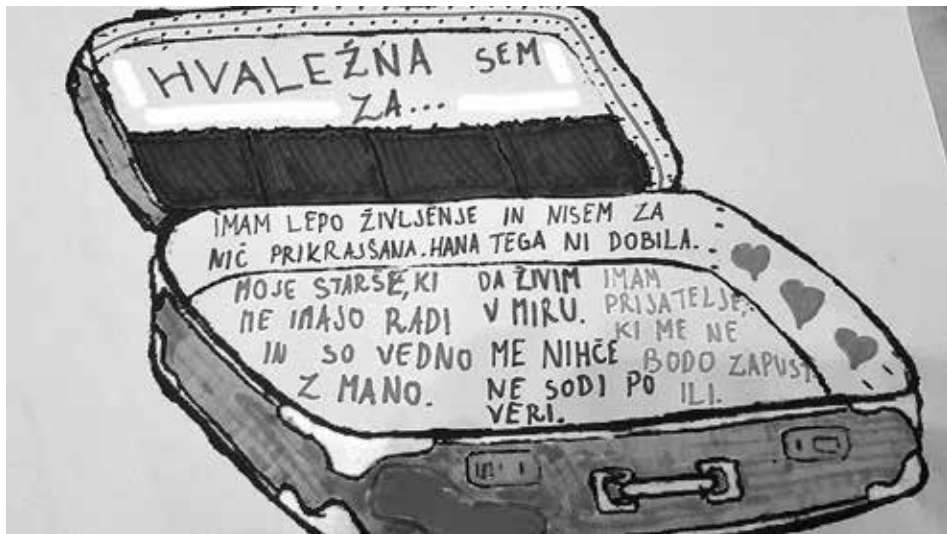 HVALEŽNA SEM
ZA...
IMAM LEPO ŽIVLJENJE IN NISEM ZA
NIČ PRIKRAJŠANA. HANA TEGA NI DOBILA.
MOJE STARŠE, KI
ME IMAJO RADI
IN SO VEDNO
Z MANO.
DA ŽIVIM
V MIRU.
ME NIHČE
NE SODI PO
VERI.
IMAM
PRIJATELJE,
KI ME NE
BODO ZAPUST
ILI.